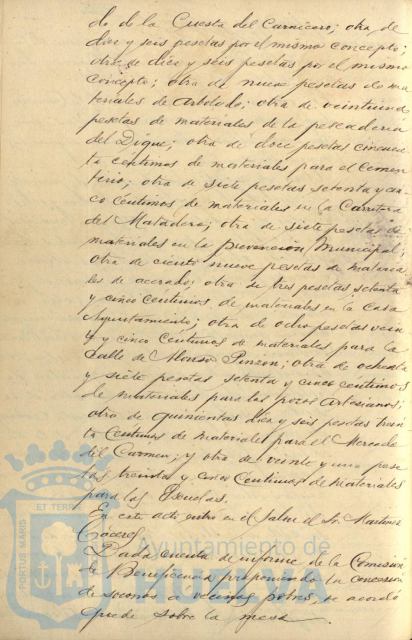 do de la Cuesta del Carnicero; otra de
diez y seis pesetas por el mismo concepto;
otra de diez y seis pesetas por el mismo
concepto; otra de nueve pesetas de ma
teriales de Arbolado; otra de veintiuna
pesetas de materiales de la pescaderia
del Dique; otra de doce pesetas cincuen
ta centimos de materiales para el Cemen
terio; otra de siete pesetas setenta y cin
co centimos de materiales en la Carretera
del Matadero; otra de siete pesetas de
materiales en la prevencion Municipal;
otra de ciento nueve pesetas de materia
les de acerado; otra de tres pesetas setenta
y cinco centimos de materiales en la Casa
Ayuntamiento; otra de ocho pesetas vein
te y cinco centimos de materiales para la
Calle de Alonso Pinzon; otra de ochenta
y siete pesetas setenta y cinco centimos
de materiales para los pozos Artesianos;
otra de quinientas diez y seis pesetas trein
ta centimos de material para el Mercado
del Carmen; y otra de veinte y una pese
tas treinta y cinco centimos de materiales
para las Escuelas.
En este acto entro en el Salon el Sr. Martinez
Dada cuenta de informe de la Comision
de Beneficencia proponiendo la concesion
de socorros a vecinos pobres, se acordó
quede sobre la mesa.
Ayuntamiento de
HUELVA
PORTUS MARIS
ET TERRE